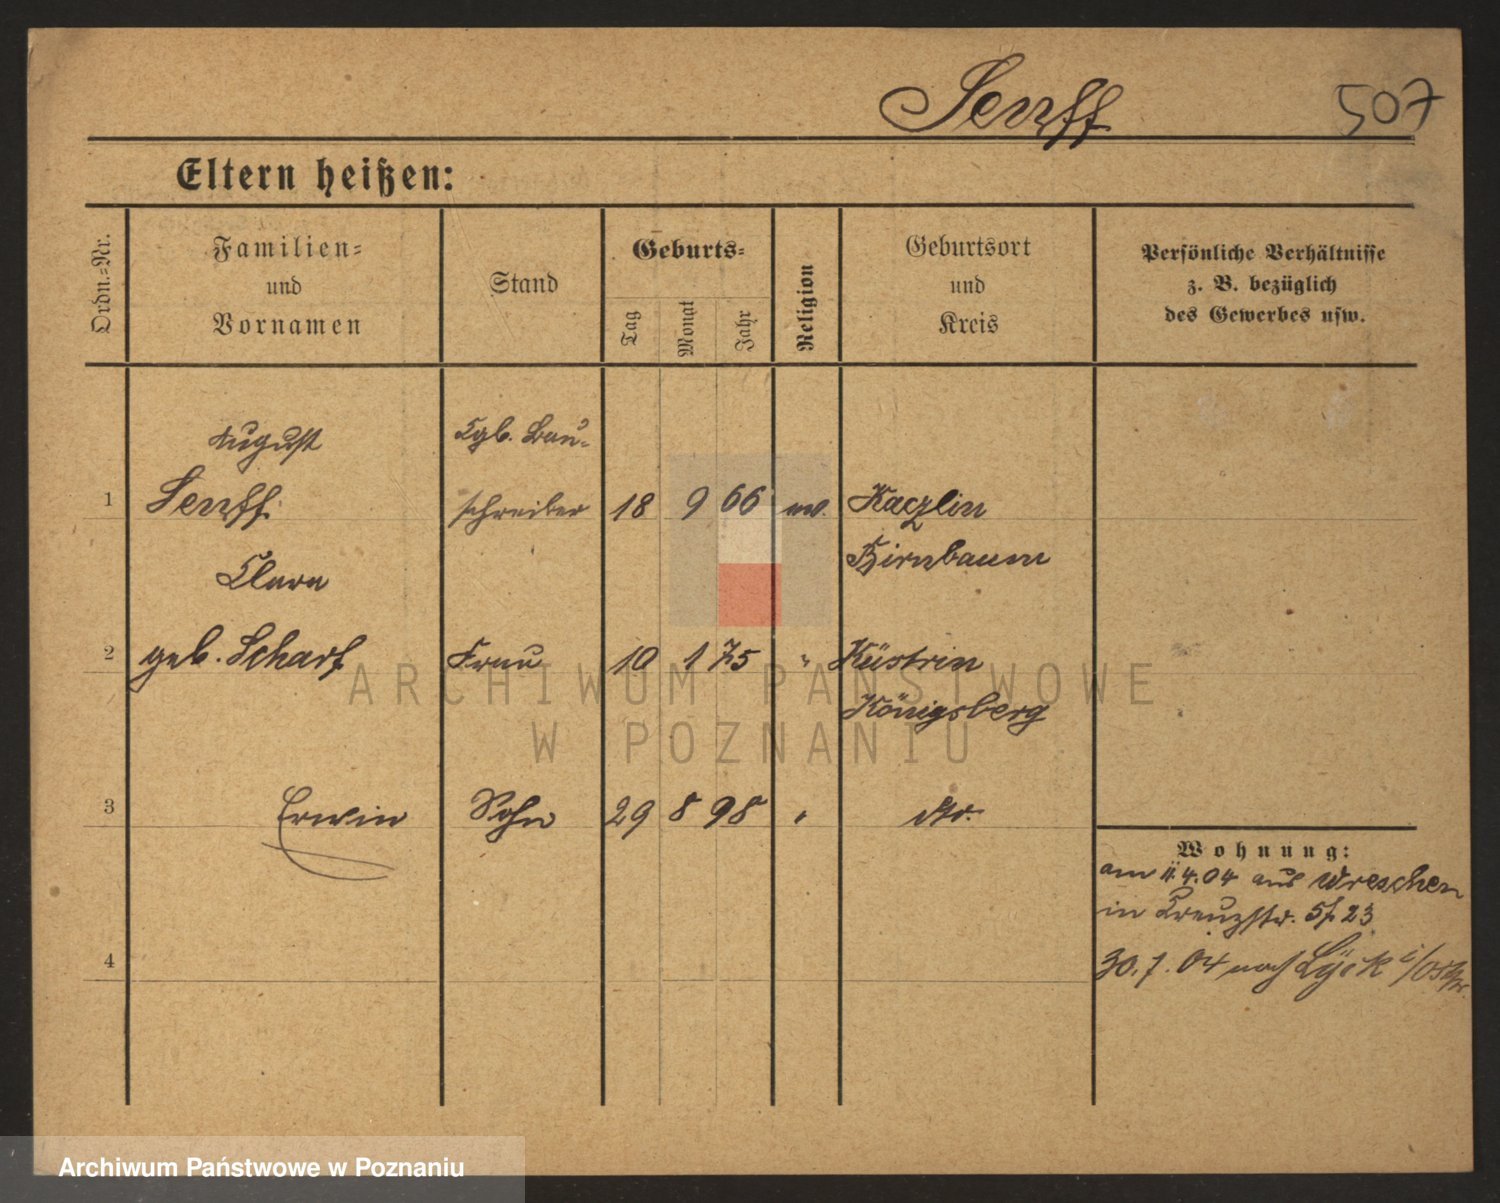 Senff 507
Eltern heißen:
Ordn.-Nr.
Familien-
und
Vornamen
Stand
Geburts-
Tag
Monat
Jahr
Religion
Geburtsort
und
Kreis
Persönliche Verhältnisse
z. B. bezüglich
des Gewerbes usw.
August Kgl. Bau-
1 Senff schreiber 18 9 66 ev. Kaczlin
Birnbaum
Clara
2 geb. Scharf Frau 10 1 75 " Küstrin
Königsberg
3 Erwin Sohn 29 8 98 " dto.
4
Wohnung:
am 11.4.04 aus Wreschen
in Kreuzstr. 5 23
30.7.04 nach Lyck i/Ostpr.
ARCHIWUM PAŃSTWOWE
W POZNANIU
Archiwum Państwowe w Poznaniu